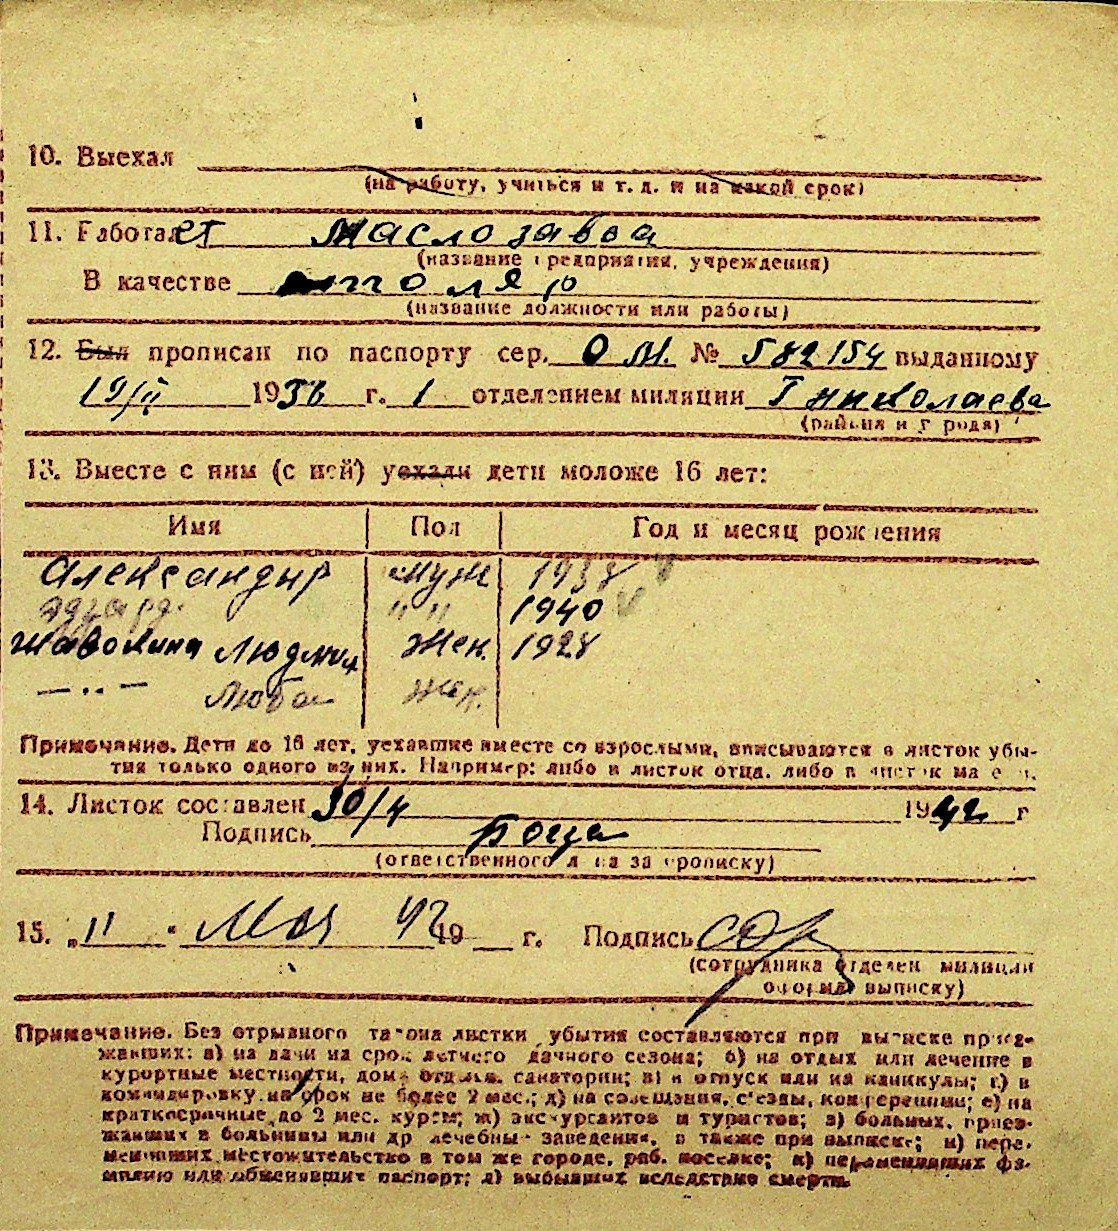 10. Выехал
(на работу, учиться и т. д. и на какой срок)
11. Работает Маслозавода
(название предприятия, учреждения)
В качестве столяр
(название должности или работы)
12. Был прописан по паспорту сер. О М. № 582154 выданному
19/II 1936 г. 1 отделением милиции Г Николаева
(района и города)
13. Вместе с ним (с ней) уехали дети моложе 16 лет:
Имя Пол Год и месяц рождения
Александр муж 1938 V
Эдуард " " 1940 V
Жаволина Людмил Жен. 1928
— .. — Люба Жен.
Примечание. Дети до 16 лет, уехавшие вместе со взрослыми, вписываются в листок убы-
тия только одного из них. Например: либо в листок отца, либо в листок матери.
14. Листок составлен 30/4 1942 г
Подпись
(ответственного лица за прописку)
15. „11" Мая 42 19 г. Подпись
(сотрудника отделен. милиции
оформив. выписку)
Примечание. Без отрывного талона листки убытия составляются при выписке приез-
жавших: а) на дачи на срок летнего дачного сезона; б) на отдых или лечение в
курортные местности, дома отдыха, санатории; в) в отпуск или на каникулы; г) в
командировку на срок не более 2 мес.; д) на совещания, съезды, конференции; е) на
краткосрочные до 2 мес. курсы; ж) экскурсантов и туристов; з) больных, приез-
жавших в больницы или др лечебны заведения, а также при выписке; и) пере-
менивших местожительство в том же городе, раб. поселке; к) переменивших фа-
милию или обменявших паспорт; л) выбывших вследствие смерти.